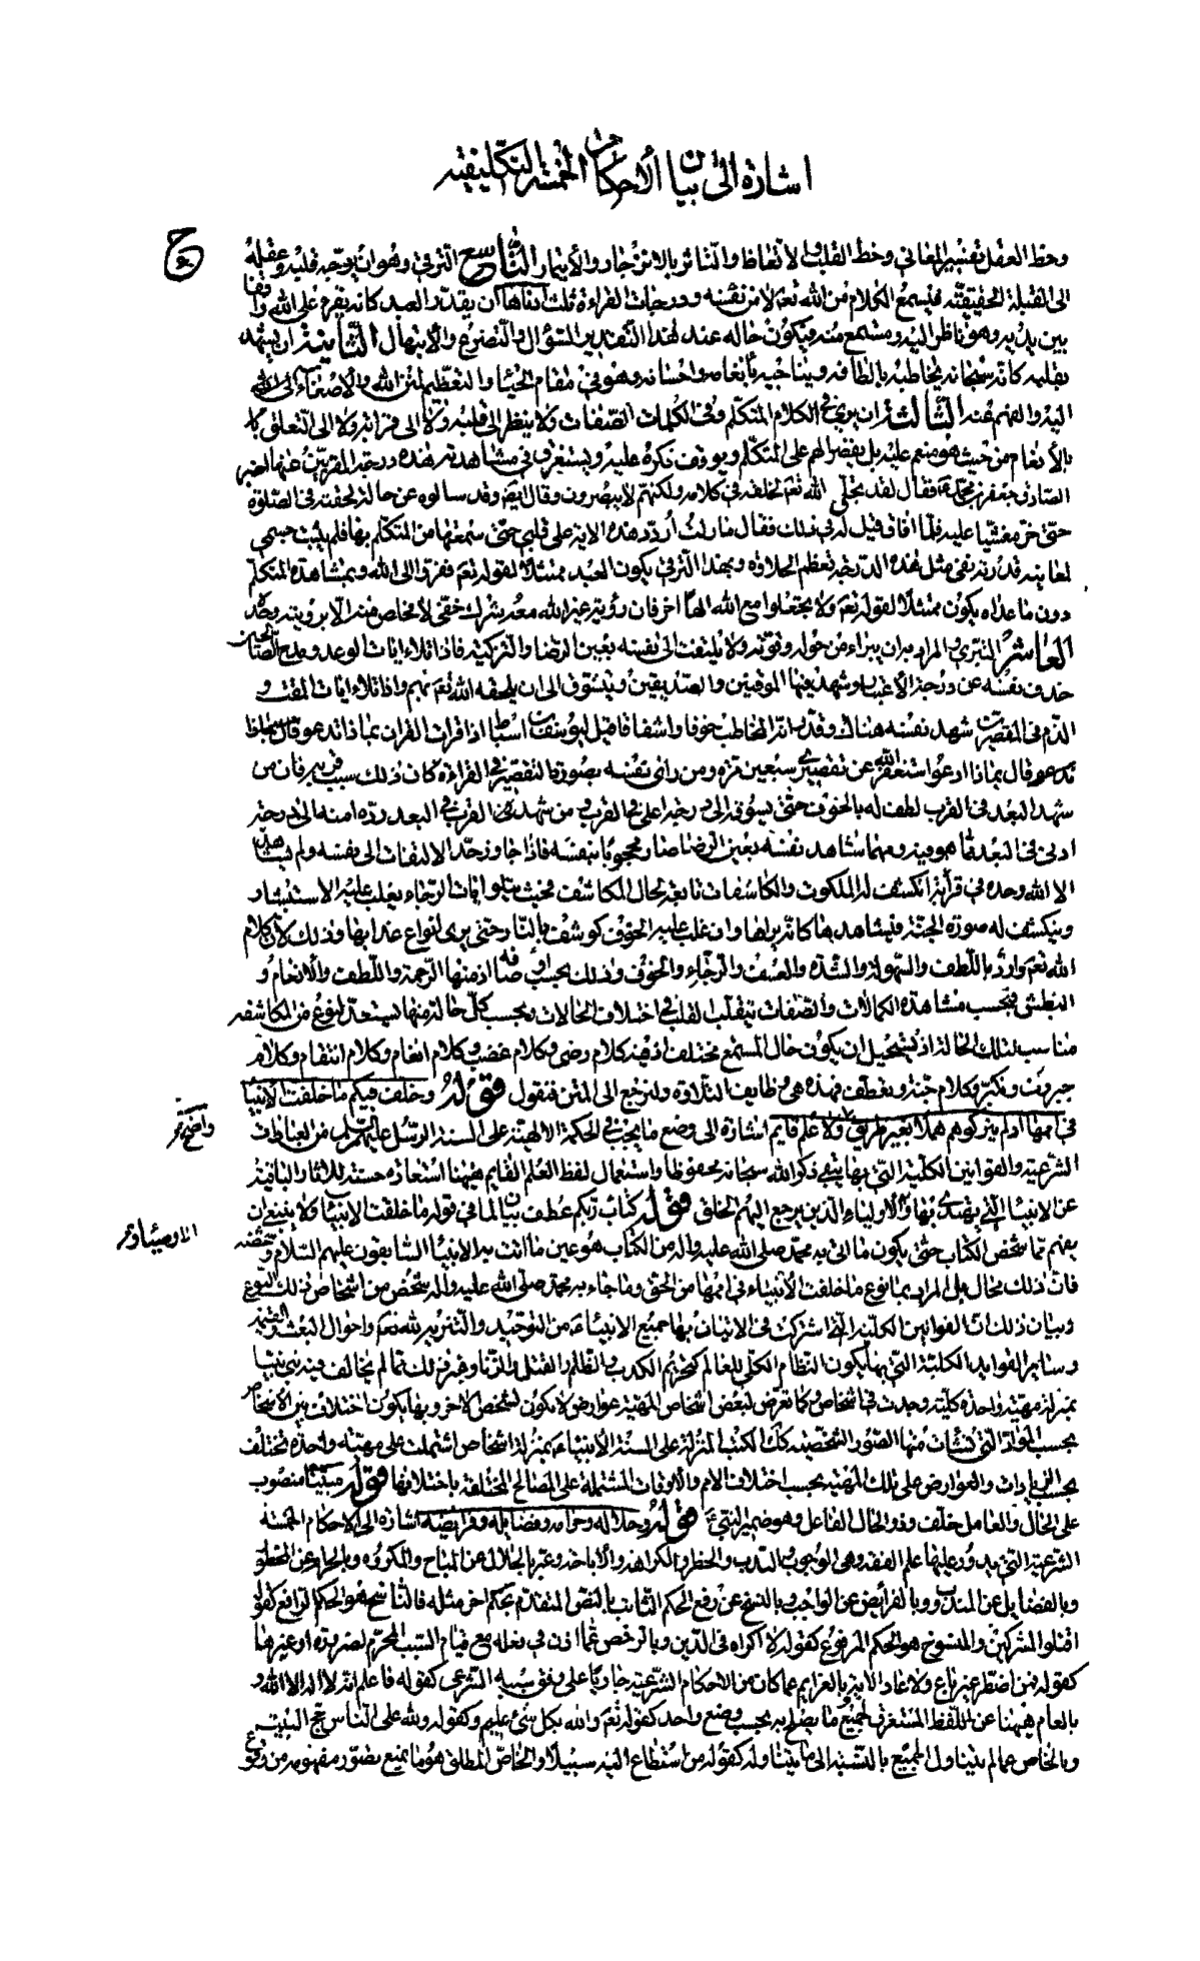 اشارة الى بيان الأحكام الخمسة التكليفية
ج
وحظ العقل تفسير المعاني وحظ القلب الاتعاظ والتأثر بالانزجار والايتمار التاسع الترقي وهو ان يوجه قلبه وعقله
الى القبلة الحقيقية فيسمع الكلام من الله تعم لا من نفسه ودرجات القراءة ثلث ادناها ان يقدر العبد كانه يقرء على الله واقفا
بين يديه وهو ناظر اليه ومستمع منه فيكون حاله عند هذا التقدير السؤال والتضرع والابتهال الثانية ان يشهد
بقلبه كانه سبحانه يخاطبه بالطافه ويناجيه بانعامه واحسانه وهو في مقام الحياء والتعظيم لمنن الله والاصغاء الى الله
اليه والفهم منه الثالثة ان يرى في الكلام المتكلم وفي الكلمات الصفات ولا ينظر الى قلبه ولا الى قراءته ولا الى التعلق
بالانعام من حيث هو منعم عليه بل يقصر الهم على المتكلم ويوقف فكره عليه ويستغرق في مشاهدته وهذه درجة المقربين عنها اخبر
الصادق جعفر بن محمد ع فقال لقد تجلى الله تعم لخلقه في كلامه ولكنهم لا يبصرون وقال ايضم وقد سالوه عن حالة لحقته في الصلوة
حتى خر مغشيا عليه فلما افاق قيل له في ذلك فقال ما زلت اردد هذه الاية على قلبي حتى سمعتها من المتكلم بها فلم يثبت جسمي
لمعاينة قدرته ففي مثل هذه الدرجة تعظم الحلاوة وبهذا الترقي يكون العبد ممتثلا لقوله تعم ففروا الى الله وبمشاهدة المتكلم
دون ما عداه يكون ممتثلا لقوله تعم ولا تجعلوا مع الله الها اخر فان رؤية غير الله معه شرك خفي لا مخلص منه الا برويته وحده
العاشر التبري والمراد به ان يتبراء من حوله وقوته ولا يلتفت الى نفسه بعين الرضا والتزكية فاذا تلا ايات الوعد ومدح الصالحين
حذف نفسه عن درجة الاعتبار وشهد فيها الموقنين والصديقين ويتشوق الى ان يلحقه الله تعم بهم واذا تلا ايات المقت و
الذم في المقصرين شهد نفسه هناك وقدر انه المخاطب خوفا واشفاقا قيل ليوسف بن اسباط اذا قرات القران بماذا تدعو قال
تدعو قال بماذا ادعوا استغفر الله عن تقصيري سبعين مرة ومن راى نفسه بصورة التقصير في القراءة كان ذلك سبب قربه فان من
شهد البعد في القرب لطف له بالخوف حتى يسوقه الى درجة اعلى في القرب ومن شهد القرب في البعد رده امنه الى درجة
ادنى في البعد مما هو فيه ومهما شاهد نفسه بعين الرضا صار محجوبا بنفسه فاذا جاوز حد الالتفات الى نفسه ولم يشاهد
الا الله وحده في قرائته انكشف له الملكوت والمكاشفات تابعة لحال المكاشف فحيث يتلوا ايات الرجاء يغلب عليه الاستبشار
وينكشف له صورة الجنة فيشاهدها كانه يراها وان غلب عليه الخوف كوشف بالنار حتى يرى انواع عذابها وذلك لان كلام
الله تعم وارد باللطف والسهولة والشدة والعسف والرجاء والخوف وذلك بحسب اوصافه اذ منها الرحمة واللطف والانعام و
البطش فبحسب مشاهدة الكمالات والصفات يتقلب القلب في اختلاف الحالات وبحسب كل حالة منها يستعد لنوع من المكاشفة
مناسب لتلك الحالة اذ يستحيل ان يكون حال المستمع مختلف اذ فيه كلام رضى وكلام غضب وكلام انعام وكلام انتقام وكلام
جبروت وتكبر وكلام جنة وتعطف فهذه هي وظايف التلاوة ولنرجع الى المتن فنقول قوله وخلف فيكم ما خلفت الانبيا
في اممها اذ لم يتركوهم هملا بغير طريق ولا علم قايم اشارة الى وضع ما يجب في الحكمة الالهية على السنة الرسل عليهم السلم من العبادات
واضح خ
الشرعية والقوانين الكلية التي بها يبقى ذكر الله سبحانه محفوظا واستعمال لفظ العلم القايم هيهنا استعارة حسنة للاثار الباقية
عن الانبياء التي يهتدى بها والاولياء الذين يرجع اليهم الخلق قوله كتاب ربكم عطف بيان لما في قوله ما خلفت الانبياء ولا ينبغي ان
الاوصياء خ
يفهم مما شخص الكتاب حتى يكون ما اتى به محمد صلى الله عليه واله من الكتاب هو عين ما اتت به الانبياء السابقون عليهم السلام وشخصه
فان ذلك محال بل المراد بما نوع ما خلفت الانبياء في اممها من الحق وما جاء به محمد صلى الله عليه واله شخص من اشخاص ذلك النوع
وبيان ذلك ان القوانين الكلية التي اشتركت في الاتيان بها جميع الانبياء ع من التوحيد والتنزيه لله تعم واحوال البعث والقيمة
وساير القواعد الكلية التي بها يكون النظام الكلي للعالم كتحريم الكذب والظلم والقتل والزنا وغير ذلك مما لم يخالف فيه نبي نبيا
بمنزلة مهية واحدة كلية وجدت في اشخاص وكما تعرض لبعض اشخاص المهية عوارض لا تكون لشخص الاخر وبها يكون اختلاف بين الاشخاص
بحسب المواد التي نشات منها الصور الشخصية كك الكتب المنزلة على السنة الانبياء ع بمنزلة اشخاص اشتملت على مهية واحدة تختلف
بحسب الزيادات والعوارض على تلك المهية بحسب اختلاف الامم والاوقات المشتملة على المصالح المختلفة باختلافها قوله مبينا منصوب
على الحال والعامل خلف وذو الحال الفاعل وهو ضمير النبي ص قوله وحلاله وحرامه وفضايله وفرايضه اشارة الى الاحكام الخمسة
الشرعية التي يدور عليها علم الفقه وهي الوجوب والندب والحظر والكراهة والاباحة وعبر بالحلال عن المباح والمكروه وبالحرام عن المحظور
وبالفضايل عن المندوب وبالفرايض عن الواجب وبالنسخ عن رفع الحكم الثابت بالنص المتقدم بحكم اخر مثله فالناسخ هو الحكم الرافع كقوله
اقتلوا المشركين والمنسوخ هو الحكم المرفوع كقوله لا اكراه في الدين وبالرخص عما اذن في فعله مع قيام السبب المحرم لضرورة او غيرها
كقوله فمن اضطر غير باغ ولا عاد الاية بالعزايم عما كان من الاحكام الشرعية جاريا على وفق سببه الشرعي كقوله فاعلم انه لا اله الا الله و
بالعام هيهنا عن اللفظ المستغرق لجميع ما يصلح به بحسب وضع واحد كقوله تعم والله بكل شئ عليم وكقوله ولله على الناس حج البيت
وبالخاص عما لم يتناول الجميع بالنسبة الى ما يتناوله كقوله من استطاع اليه سبيلا والخاص المطلق هو ما يمنع تصور مفهومه من وقوع